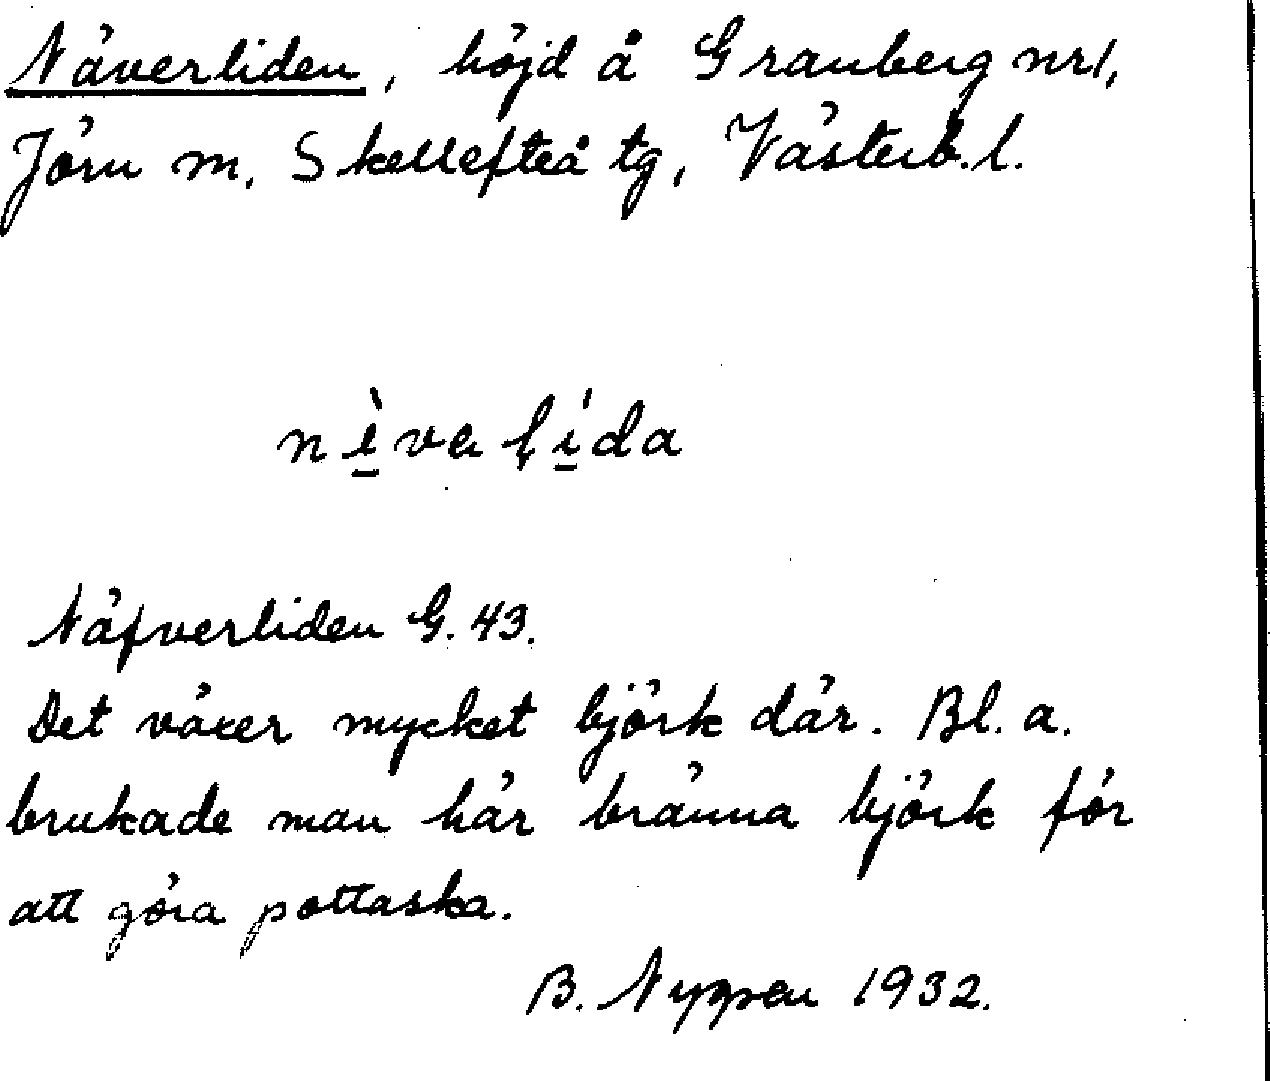 Näverliden, höjd å Granberg nr 1,
Jörn sn, Skellefteå tg, Västerb. l.
nèva lída
Näfverliden G. 43.
Det växer mycket björk där. Bl. a.
brukade man här bränna björk för
att göra pottaska.
B. Nygren 1932.